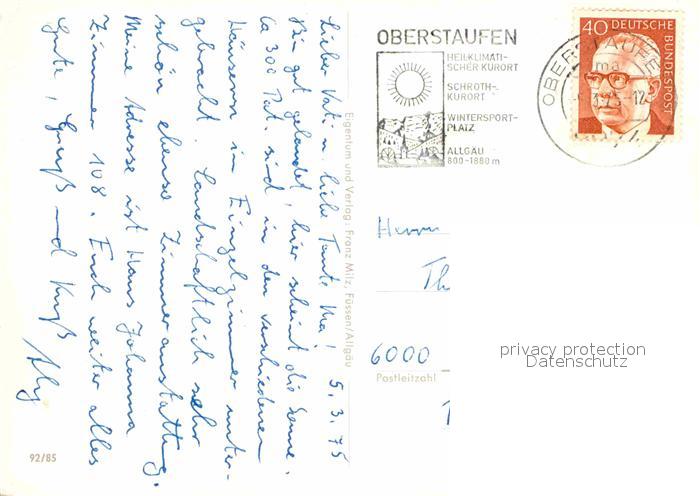 5.3.75
Lieber Vati u. liebe Tante Ma!
Bin gut gelandet, hier scheint die Sonne.
Ca 300 Pat. sind in den verschiedenen
Häusern in Einzelzimmer unter-
gebracht. Landschaftlich sehr
schön ebenso Zimmerausstattung.
Meine Adresse ist Haus Johanna
Zimmer 108. Euch weiter alles
Gute, Gruß und Kuß
Eigentum und Verlag: Franz Milz, Füssen/Allgäu
92/85
OBERSTAUFEN
HEILKLIMATI-
SCHER KURORT
SCHROTH-
KURORT
WINTERSPORT-
PLATZ
ALLGÄU
800-1880 m
OBERSTAUFEN
ma
-12
40 DEUTSCHE
BUNDESPOST
Herrn
Th
6000
Postleitzahl
privacy protection
Datenschutz